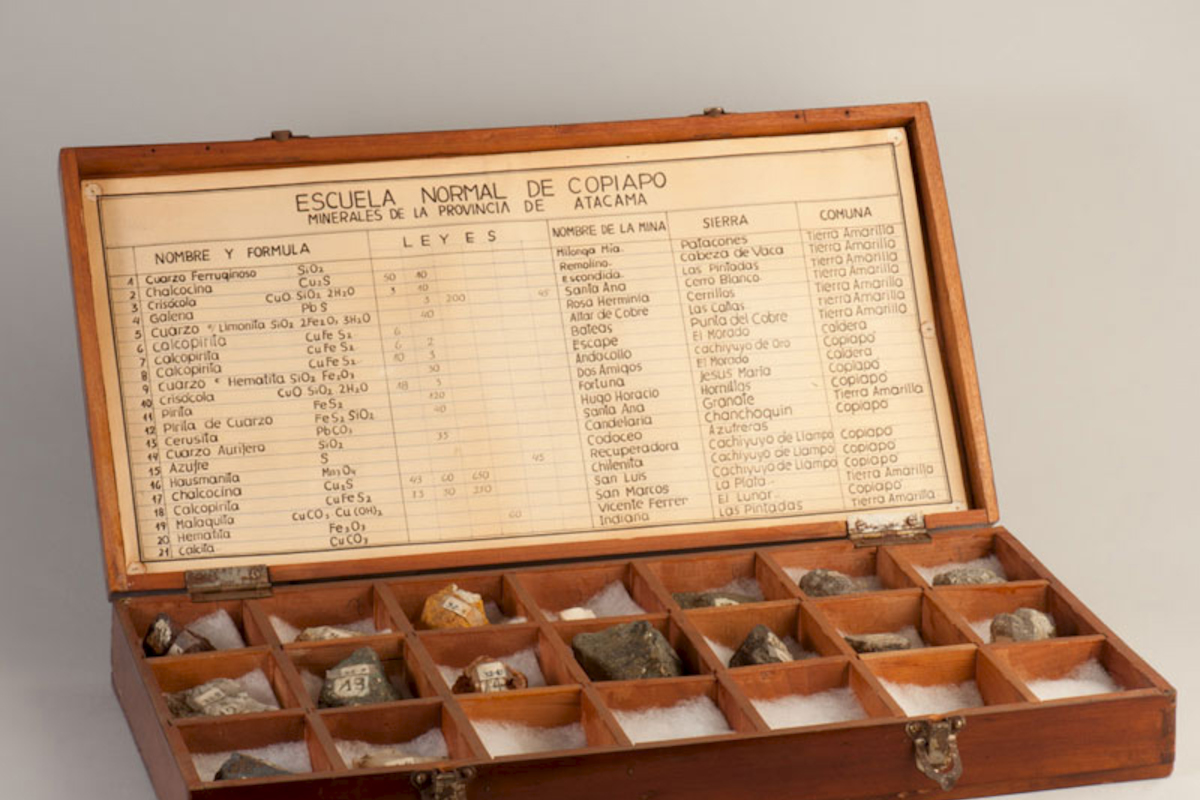 ESCUELA NORMAL DE COPIAPO
MINERALES DE LA PROVINCIA DE ATACAMA
NOMBRE Y FORMULA LEYES NOMBRE DE LA MINA SIERRA COMUNA
1 Cuarzo Ferruginoso SiO₂ Milonga Mia. Patacones Tierra Amarilla
2 Chalcocina Cu₂S 50 Remolino. Cabeza de Vaca Tierra Amarilla
3 Crisócola CuO SiO₂ 2H₂O 3 10 Escondida. Las Pintadas Tierra Amarilla
4 Galena PbS 3 200 45 Santa Ana Cerro Blanco Tierra Amarilla
5 Cuarzo c/ Limonita SiO₂ 2Fe₂O₃ 3H₂O 40 Rosa Herminia Cerrillos Tierra Amarilla
6 Calcopirita CuFeS₂ 6 Altar de Cobre Las Cañas Tierra Amarilla
7 Calcopirita CuFeS₂ 6 2 Bateas Punta del Cobre Tierra Amarilla
8 Calcopirita CuFeS₂ 10 3 Escape El Morado Caldera
9 Cuarzo c Hematita SiO₂ Fe₂O₃ 30 Andocollo Cachiyuyo de Oro Copiapó
10 Crisócola CuO SiO₂ 2H₂O 18 3 Dos Amigos El Morado Caldera
11 Pirita FeS₂ 120 Fortuna Jesús María Copiapó
12 Pirita de Cuarzo FeS₂ SiO₂ 40 Hugo Horacio Hornillas Copiapó
13 Cerusita PbCO₃ Santa Ana Granate Tierra Amarilla
14 Cuarzo Aurífero SiO₂ 35 Candelaria Chanchoquin Copiapó
15 Azufre S Codoceo Azufreras
16 Hausmanita Mn₃O₄ 45 Recuperadora Cachiyuyo de Llampo Copiapó
17 Chalcocina Cu₂S 45 60 650 Chilenita Cachiyuyo de Llampo Copiapó
18 Calcopirita CuFeS₂ 13 30 250 San Luis Cachiyuyo de Llampo Copiapó
19 Malaquita CuCO₃ Cu(OH)₂ San Marcos La Plata Tierra Amarilla
20 Hematita Fe₂O₃ 60 Vicente Ferrer El Lunar Copiapó
21 Calcita CuCO₃ Indiana Las Pintadas Tierra Amarilla
19